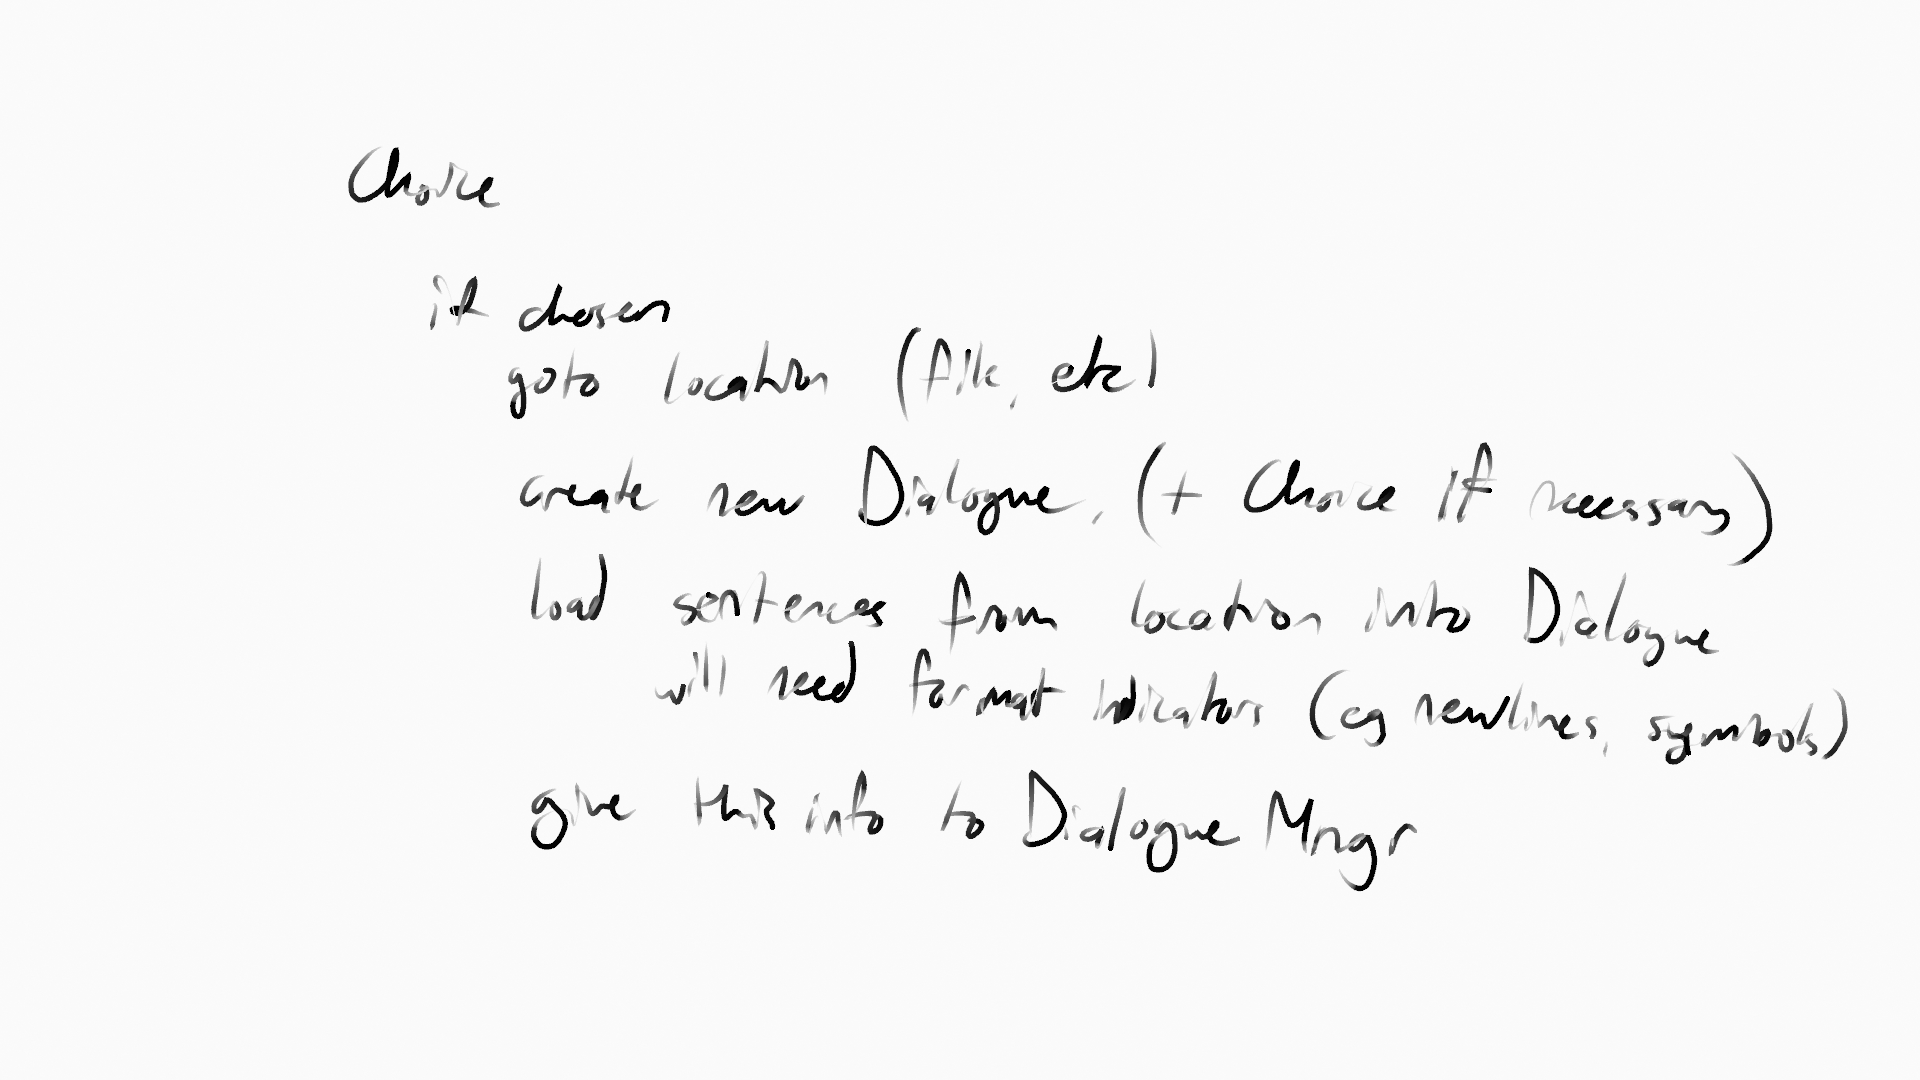 Choice
if chosen
goto location (file, etc)
create new Dialogue, (+ Choice if necessary)
load sentences from location into Dialogue
will need format indicators (eg newlines, symbols)
give this info to Dialogue Mngr